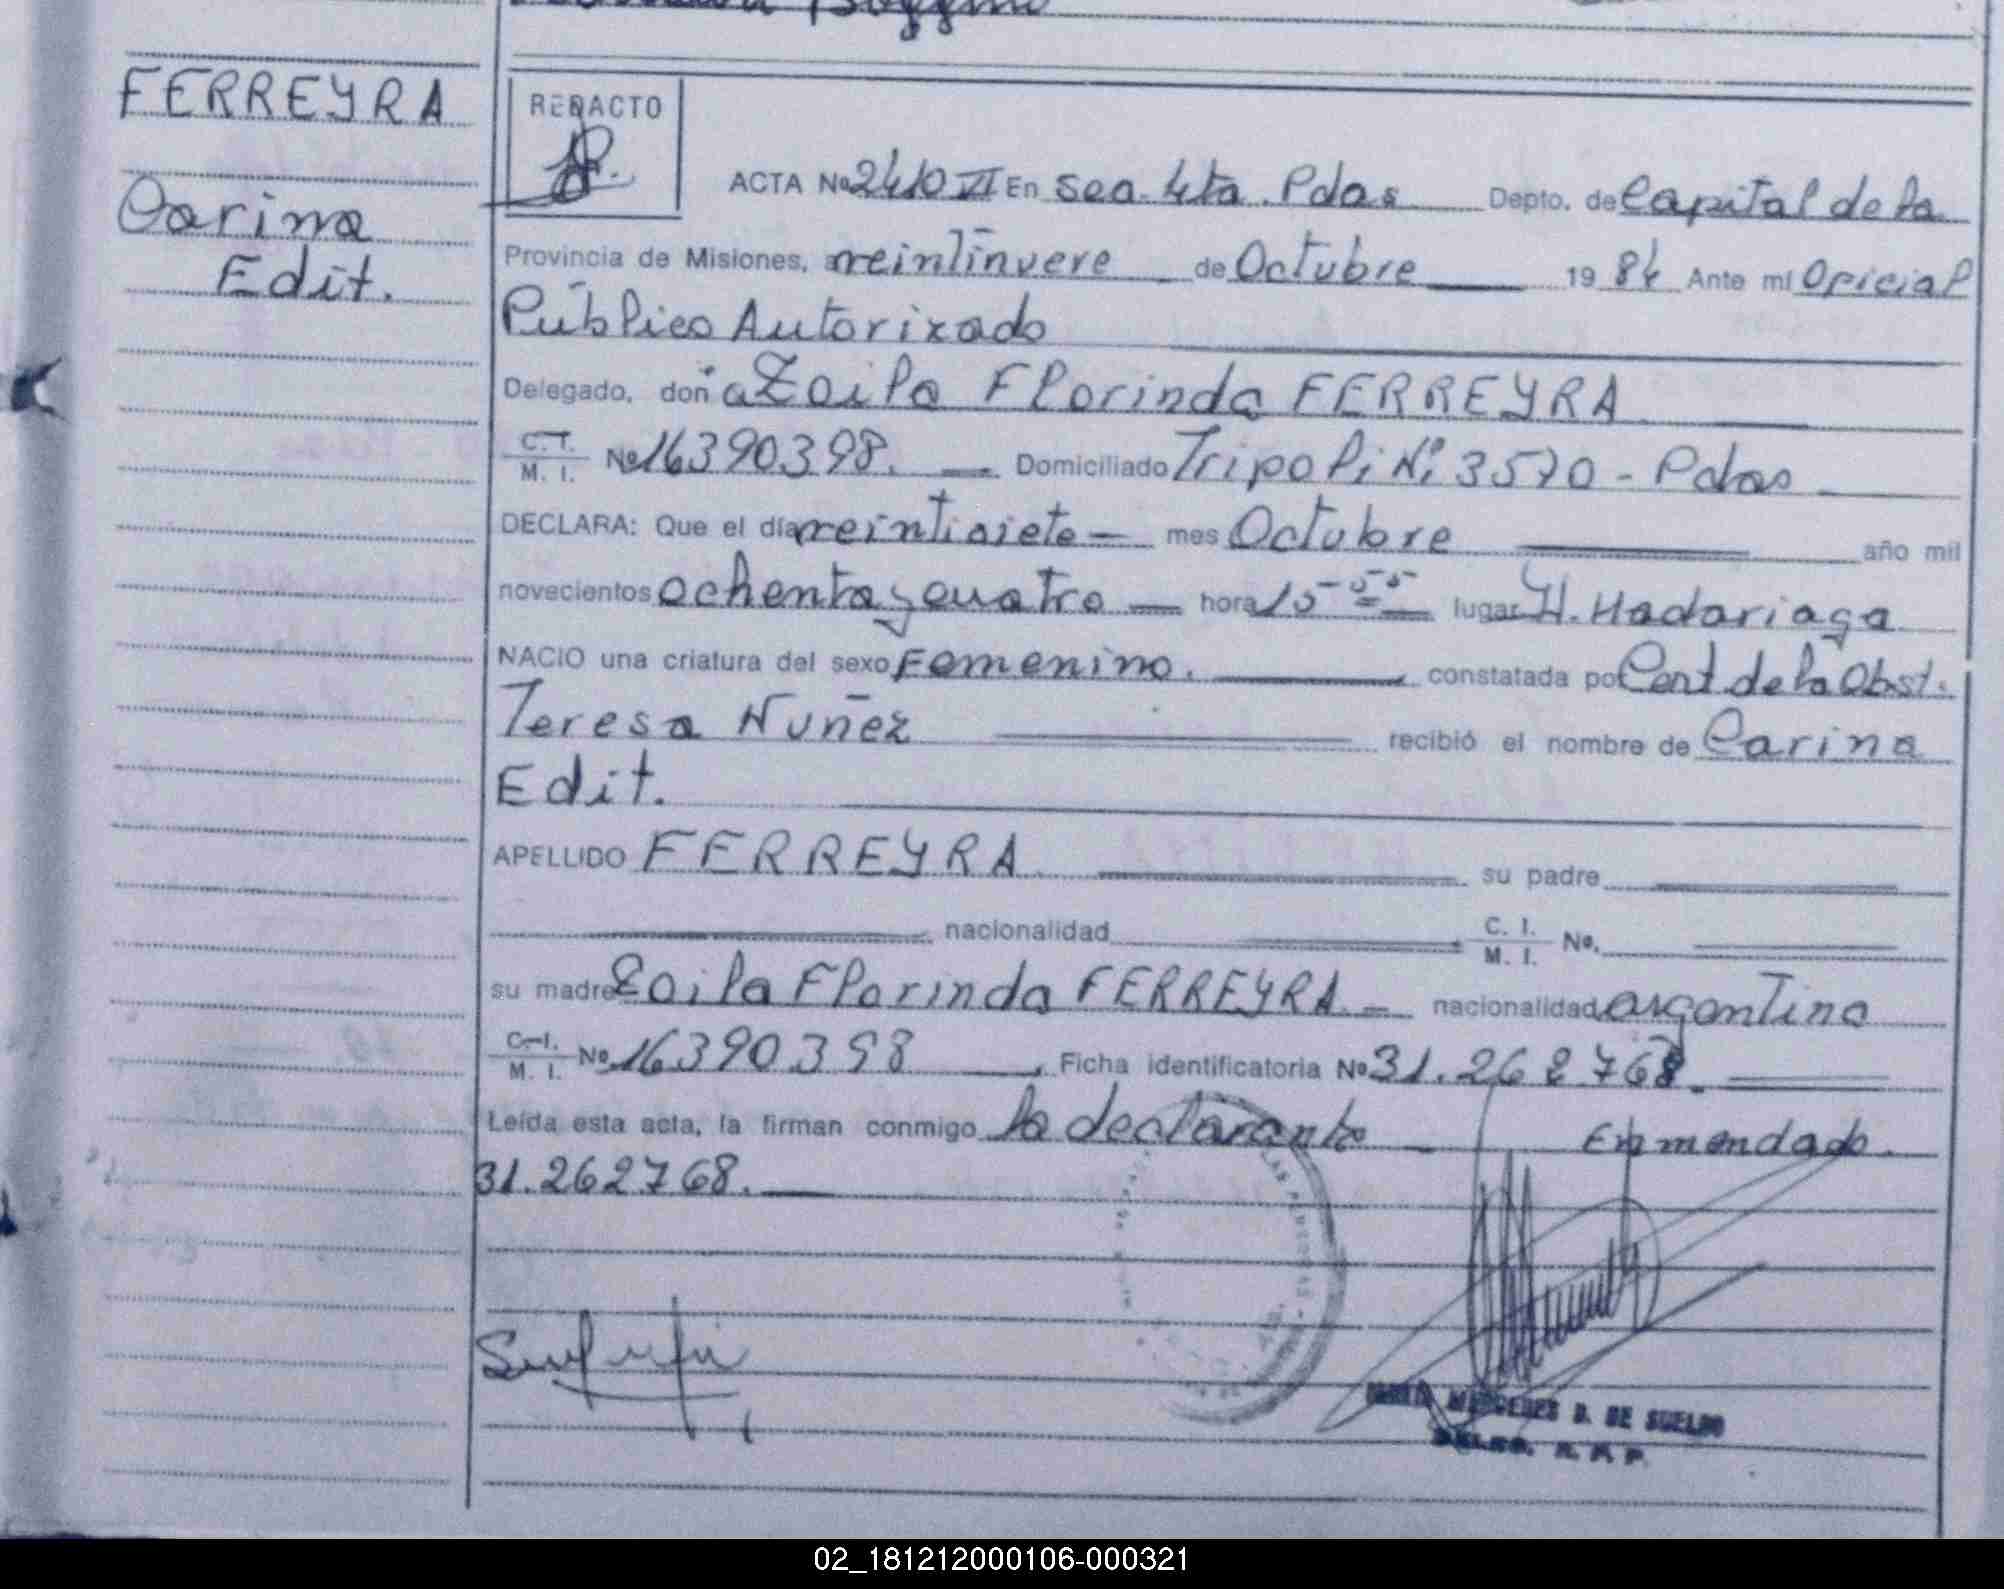 FERREYRA
Carina
Edit.
REDACTO
ACTA No 2410 VI En Sec. 4ta. Pdas Depto. de Capital de la
Provincia de Misiones, a veintinueve de Octubre 19 84 Ante mí Oficial
Público Autorizado
Delegado, don a Zoila Florinda FERREYRA
C. I. M. I. No 16390398. Domiciliado Tripoli Nº 3570 - Pdas
DECLARA: Que el día veintisiete mes Octubre año mil
novecientos ochenta y cuatro hora 15 - 55 lugar H. Madariaga
NACIO una criatura del sexo Femenino. constatada por Cert. de la Obst.
Teresa Nuñez recibió el nombre de Carina
Edit.
APELLIDO FERREYRA su padre
nacionalidad C. I. M. I. No.
su madre Zoila Florinda FERREYRA nacionalidad argentina
C. I. M. I. No 16390398 Ficha identificatoria No 31.262768.
Leída esta acta, la firman conmigo la declarante Enmendado.
31.262768.
MERCEDES B. DE SUELDO
DELEG. R. P. P.
02_181212000106-000321